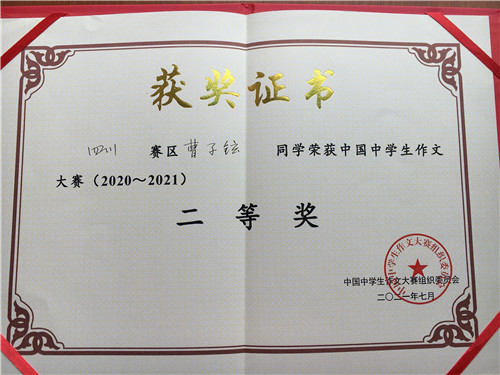 获奖证书
四川 赛区 曹子铉 同学荣获中国中学生作文
大赛（2020～2021）
二等奖
中国中学生作文大赛组织委员会
中国中学生作文大赛组织委员会
二〇二一年七月